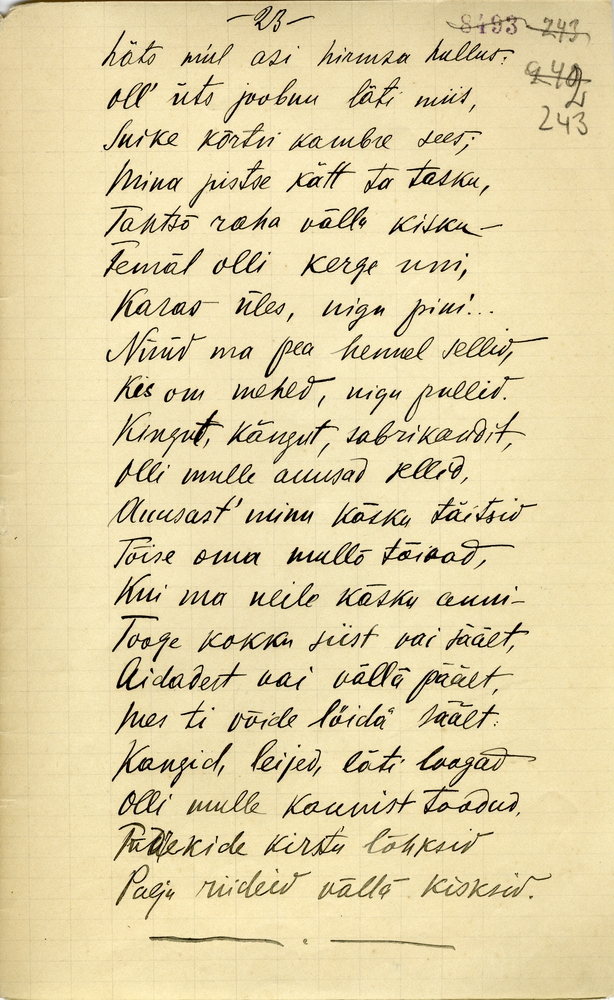 -23-
8493 243
940
2
243
häts mul asi hirmsa hullus:
Oll' üts joobnu läti miis,
Suike kõrtsi kambre sees;
Mina pistse kätt ta tasku,
Tahtsõ raha vällä kisku —
Temäl olli kerge uni,
Karas üles, nigu pini!..
Nüüd ma pea hennel sellid,
Kes om mehed, nigu pullid.
Kingut, Kängut, sabrikandit,
Olli mulle auusad sellid,
Auusast' minu käsku täitsid
Tõise oma mullõ tõivad,
Kui ma neile käsku anni —
Tooge kokku siist vai säält,
Aidadest vai vällä päält,
Mes ti võide löidä säält:
Kangid, leijed, läti loogad
Olli mulle kaunist toodud,
kirstu lõhksid
Palju riideid vällä kisksid.